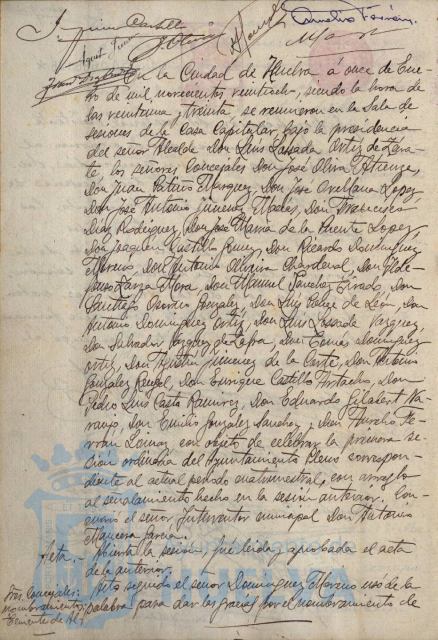 Joaquín Castilla
J. Oliva
Aurelio Ferrán
En la Ciudad de Huelva á once de Ene-
ro de mil novecientos veintiocho, siendo la hora de
las veintiuna y treinta, se reunieron en la Sala de
sesiones de la Casa Capitular, bajo la presidencia
del señor Alcalde Don Luis Quesada Ortiz de Zára-
te, los señores Concejales Don José Oliva Atienza,
Don Juan Patricio Marquez, Don José Orellana Lopez,
Don José Antonio Jimenez Macias, Don Francisco
Diaz Rodriguez, Don José Maria de la Puente Lopez,
Don Joaquin Castilla Don Ricardo Dominguez
Moreno, Don Antonio Oliveira Chardenal, Don Ilde-
fonso Zarza Mora, Don Manuel Sanchez Tirado, Don
Santiago Osorio Gonzalez, Don Luis de León, Don
Antonio Dominguez Ortiz, Don Luis Quesada Vazquez,
Don Salvador Vazquez de Zafra, Don Tomás Dominguez
Ortiz, Don Agustin Jimenez de la Corte, Don Antonio
Gonzalez Rengel, Don Enrique Castillo Artacho, Don
Pedro Luis Casto Ramirez, Don Eduardo Gilabert Na-
ranjo, Don Emilio Gonzalez Sanchez, y Don Aurelio Fe-
rrán Lomas con objeto de celebrar la primera se-
sión ordinaria del Ayuntamiento Pleno correspon-
diente al actual periodo cuatrimestral, con arreglo
al señalamiento hecho en la sesión anterior. Con-
currió el señor Interventor municipal Don Antonio
Mancera Garcia.
Acta.- Abierta la sesión fué leida y aprobada el acta
de la anterior.
Sres. Concejales:
nombramiento
Teniente de Al.
Acto seguido el señor Dominguez Moreno usó de la
palabra para dar las gracias por el nombramiento de